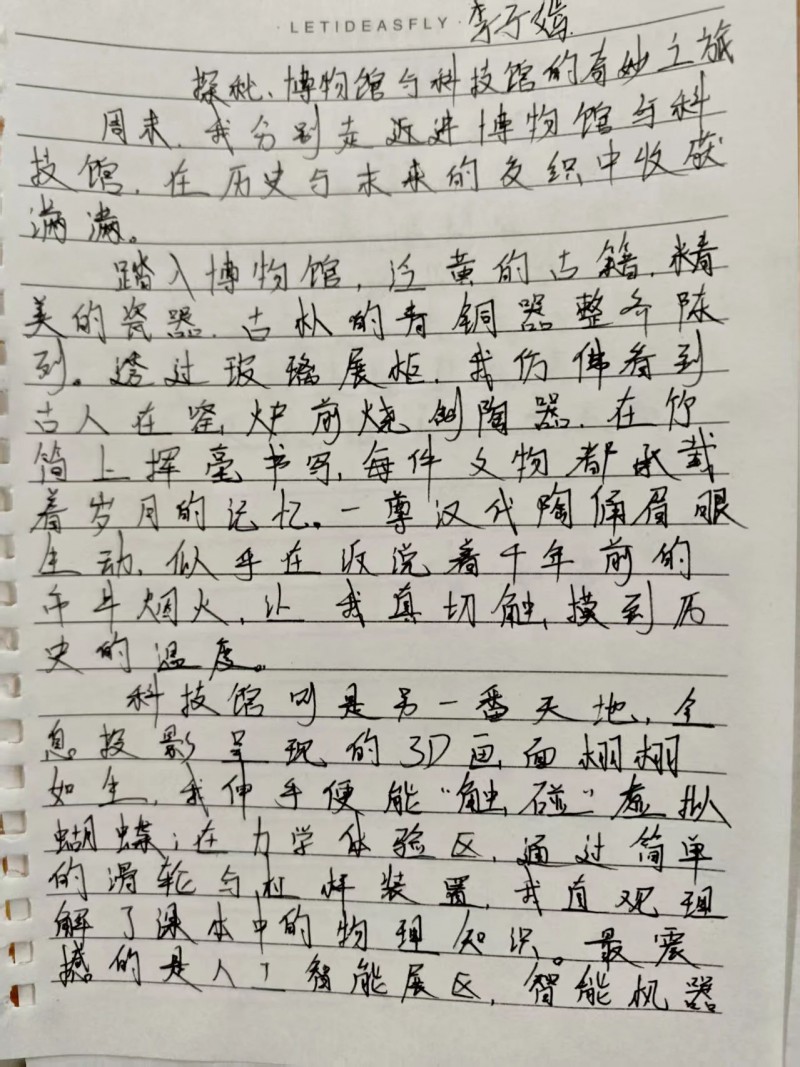 · LETIDEASFLY ·
李子
探秘、博物馆与科技馆的奇妙之旅
周末，我分别走近进博物馆与科
技馆，在历史与未来的交织中收获
满满。
踏入博物馆，泛黄的古籍，精
美的瓷器，古朴的青铜器整齐陈
列。透过玻璃展柜，我仿佛看到
古人在窑炉前烧制陶器，在竹
简上挥毫书写，每件文物都承载
着岁月的记忆。一尊汉代陶俑眉眼
生动，似乎在诉说着千年前的
市井烟火，让我真切触摸到历
史的温度。
科技馆则是另一番天地，全
息投影呈现的3D画面栩栩
如生，我伸手便能“触碰”虚拟
蝴蝶；在力学体验区，通过简单
的滑轮与杠杆装置，我直观理
解了课本中的物理知识。最震
撼的是人工智能展区，智能机器